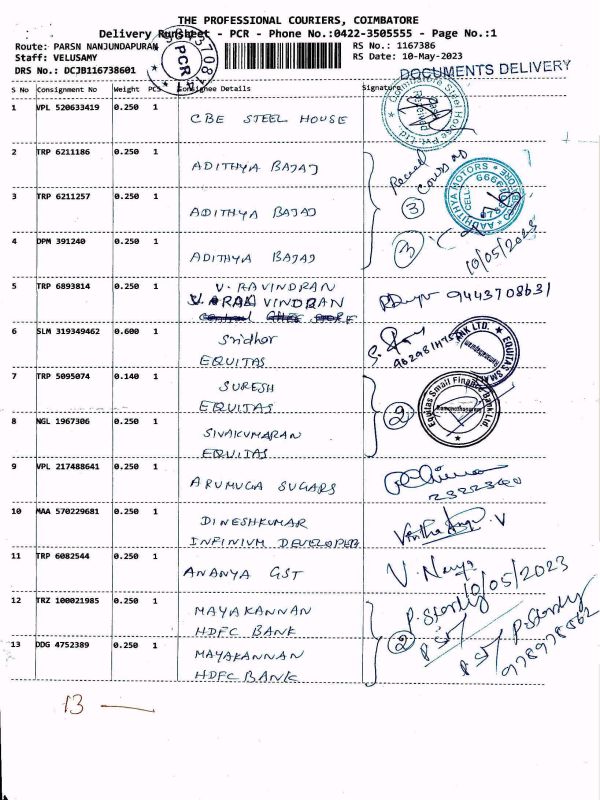 THE PROFESSIONAL COURIERS, COIMBATORE
Delivery Runsheet - PCR - Phone No.:0422-3505555 - Page No.:1
Route: PARSN NANJUNDAPURAM
RS No.: 1167386
Staff: VELUSAMY
RS Date: 10-May-2023
DRS No.: DCJB116738601
PCR
DOCUMENTS DELIVERY
S No Consignment No Weight PCS Consignee Details Signature
1 VPL 520633419 0.250 1 CBE STEEL HOUSE
2 TRP 6211186 0.250 1 ADITHYA BAJAJ
3 TRP 6211257 0.250 1 ADITHYA BAJAJ
3
AADHITHYA MOTORS
4 DPM 391240 0.250 1 ADITHYA BAJAJ
3
10/05/2023
5 TRP 6893814 0.250 1 V. RAVINDRAN
V. ARAVINDRAN
9443708631
6 SLM 319349462 0.600 1 Sridhar
EQUITAS
7 TRP 5095074 0.140 1 SURESH
EQUITAS
2
Equitas Small Finance Bank Ltd.
Ramanathapuram
8 NGL 1967306 0.250 1 SIVAKUMARAN
EQUITAS
9 VPL 217488641 0.250 1 ARUMUGA SUGARS
2322340
10 MAA 570229681 0.250 1 DINESHKUMAR
INFINIUM DEVELOPER
11 TRP 6082544 0.250 1 ANANYA GST
10/05/2023
12 TRZ 100021985 0.250 1 MAYAKANNAN
HDFC BANK
2
13 DDG 4752389 0.250 1 MAYAKANNAN
HDFC BANK
13